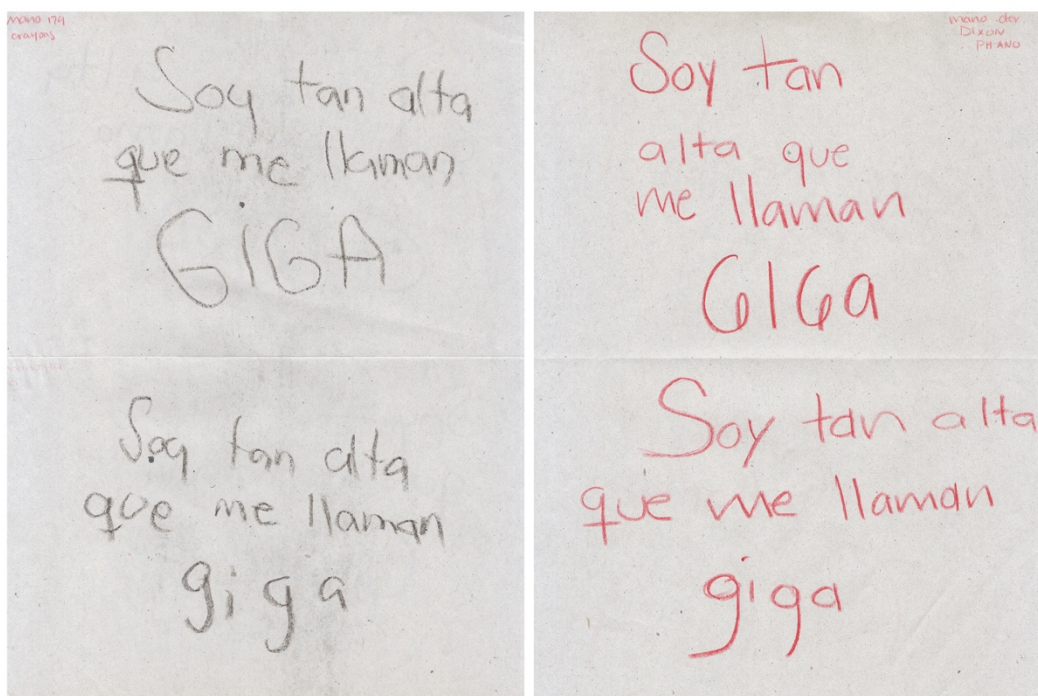 mano izq
crayons
Soy tan alta
que me llaman
GIGA
Soy tan alta
que me llaman
giga
mano der
DIXON
PHANO
Soy tan
alta que
me llaman
GIGa
Soy tan alta
que me llaman
giga